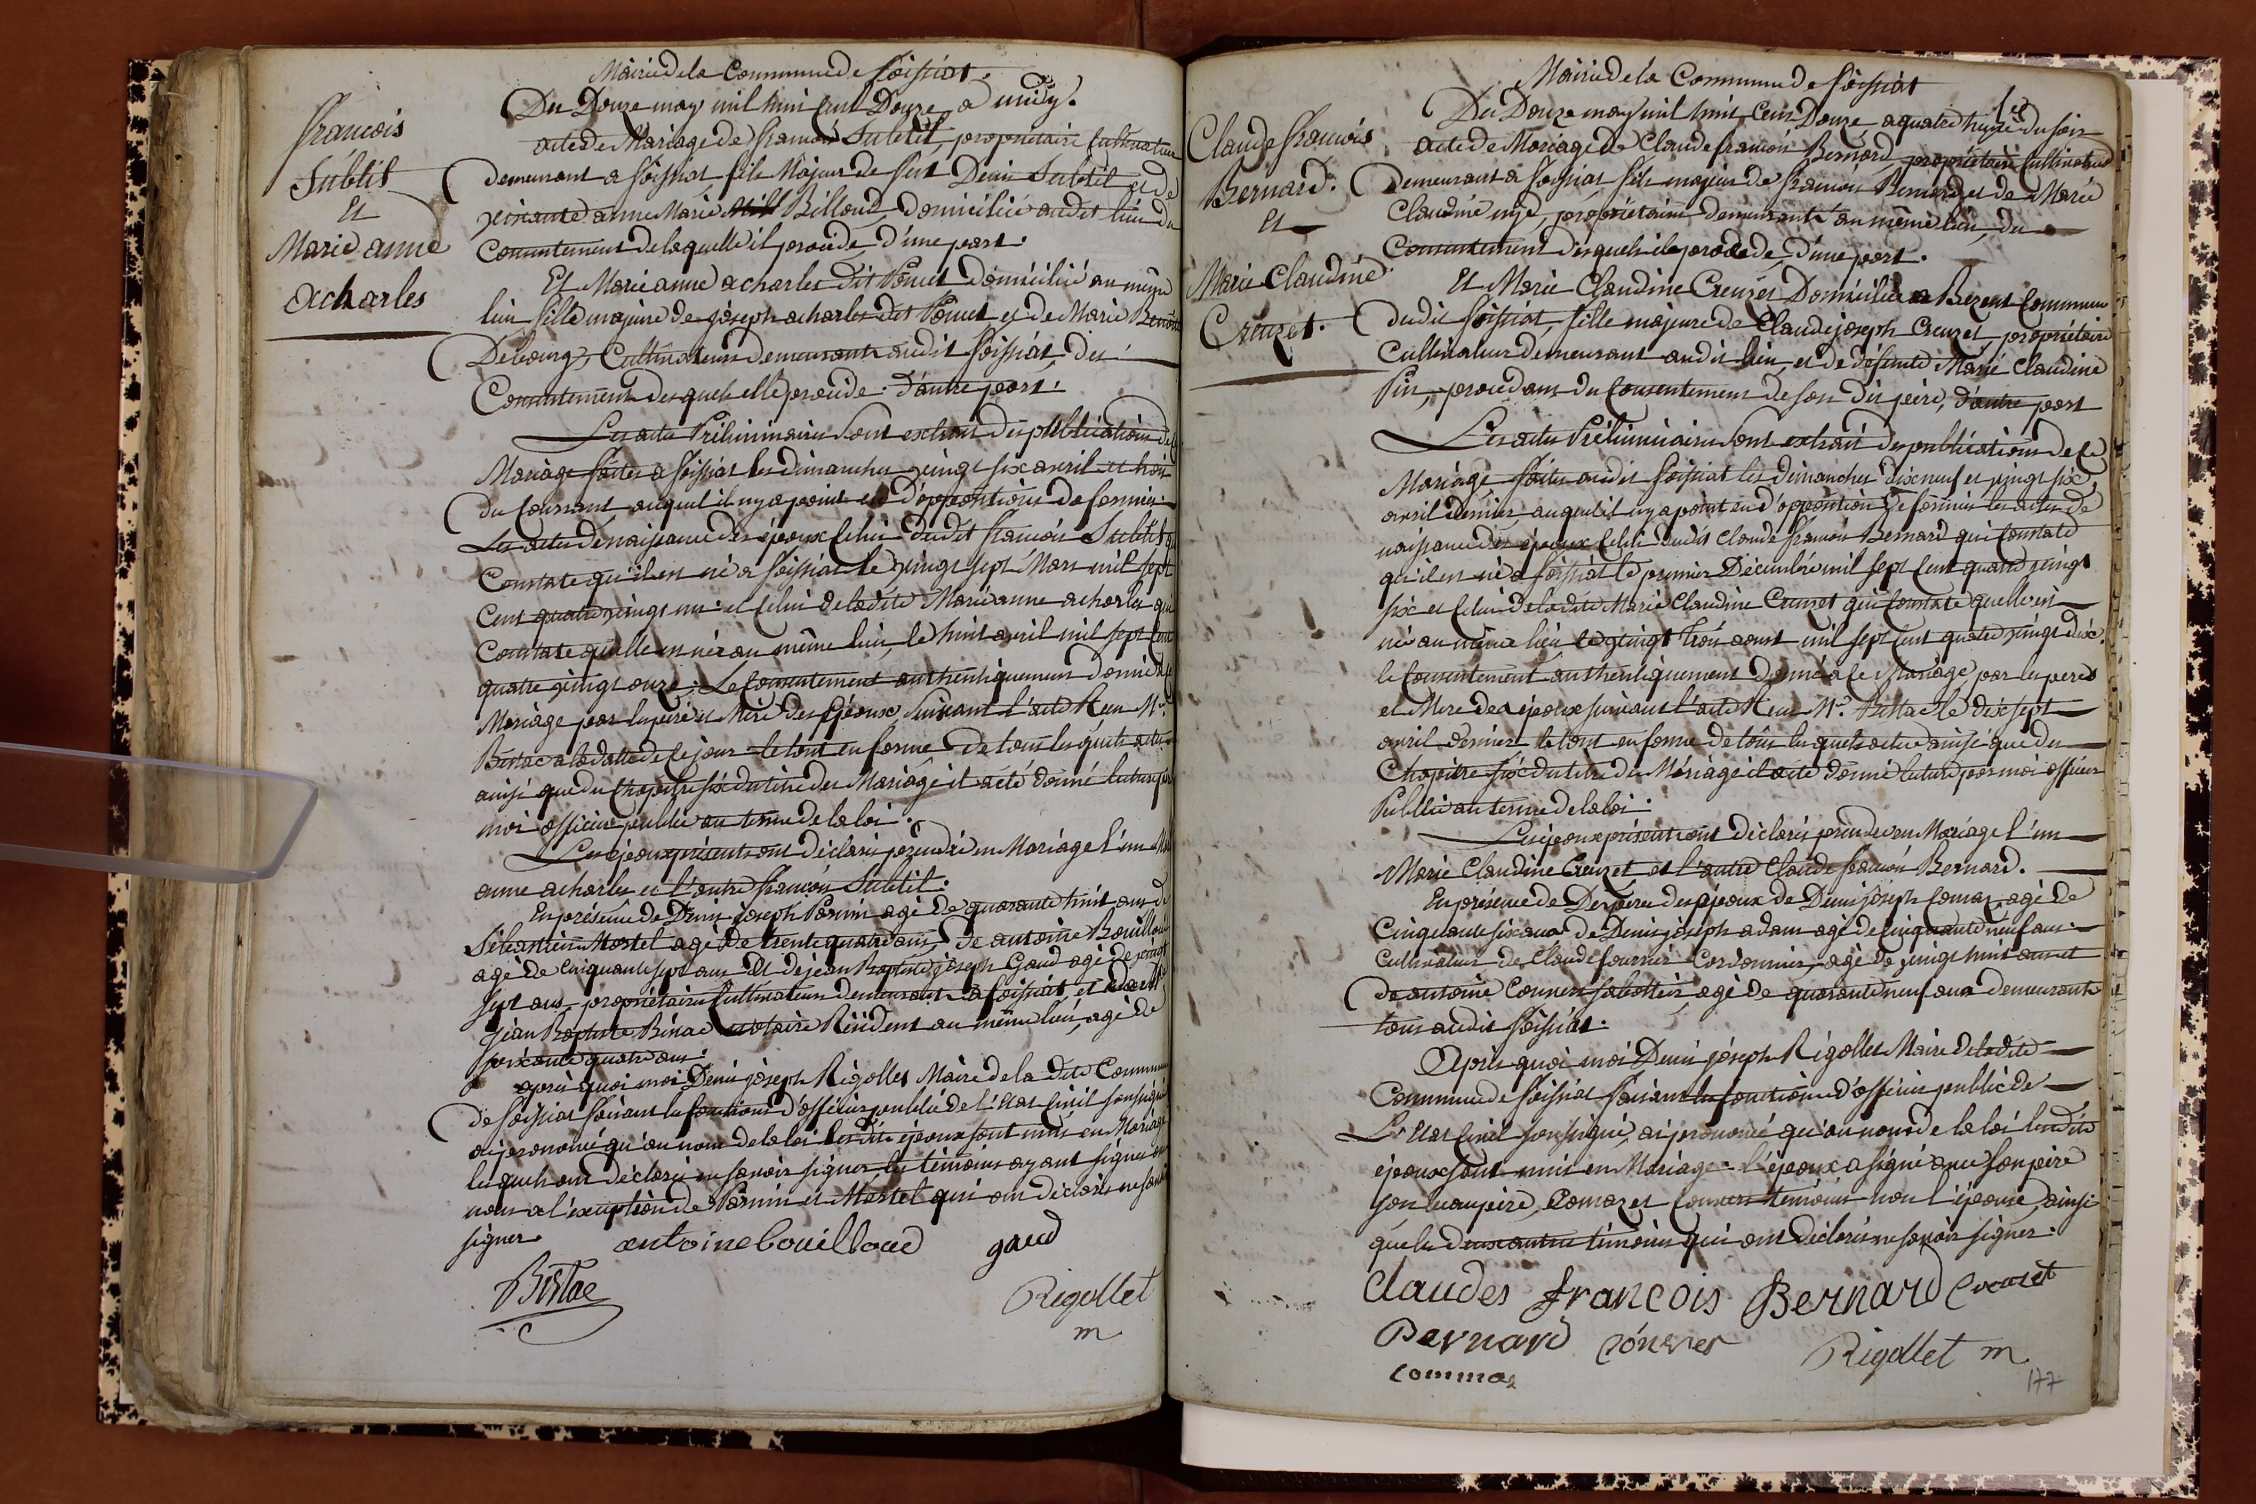 Mairie de la Commune de Foissiat.
Du Douze may mil huit Cent Douze a midy.
francois
Subtil
Et
Marie anne
acharles
acte de Mariage de francois Subtil, propriétaire Cultivateur
demeurant a foissiat fils Majeur de feut Denis Subtil et de
vivante anne Marie Billoud, domiciliée audit lieu du
Consentement de laquelle il procède, d'une part.
Et Marie anne acharles dit Poncet domiciliée au même
lieu fille majeure de joseph acharles dit Poncet et de Marie
Debourg, Cultivateurs demeurants audit foissiat, du
Consentement desquels elle procède. d'autre part.
Les actes Préliminaires sont extrait des publications de
Mariage faites a foissiat les dimanches vingt six avril et trois
du Courrant auquel il ny a point eu d'opposition de former.
Les actes de naissance des époux Celui dudit francois Subtil qui
Constate qu'il est né a foissiat le vingt sept Mars mil sept
Cent quatre vingt un. et Celui de ladite Marie anne acharles qui
Constate quelle est née au même lieu, le huit avril mil sept Cent
quatre vingt onze. Le Consentement authentiquement donné
Mariage par les père et Mère des Epoux, Suivant l'acte Reçu Mre.
Bistac a la datte de Ce jour le tout en forme de tous lesquels actes
ainsi que du Chapitre six du titre des Mariage il a été donné lecture par
moi officier public au terme de la loi.
Les époux présents ont déclarés prendre en Mariage l'un Marie
anne acharles et l'autre francois Subtil.
En présence de Denis joseph Parmin agé de quarante huit ans de
Sébastien Mortel agé de trente quatre ans, de antoine Bouilloud
agé de Cinquante sept ans Et de jean Baptiste joseph Gaud agé de vingt
sept ans, propriétaires Cultivateurs demeurants a foissiat, et
jean Baptiste Bistac notaire Résident au même lieu, agé de
soixante quatre ans.
après quoi moi Denis joseph Rigollet Maire de la dite Commune
de foissiat faisant les fonctions d'officier public de l'Etat Civil soussigné
ai prononcé qu'au nom de la loi lesdits époux sont unis en Mariage
lesquels ont déclarés ne savoir signer, les témoins ayant signés avec
nous a l'exception de Parmin et Mortel qui ont déclarés ne savoir
signer.
antoine bouilloud gaud
Bistac
Rigollet
m
Mairie de la Commune de foissiat
Du Douze may mil huit Cent Douze a quatre heure du soir
Claude francois
Bernard.
Et
Marie Claudine
Creuzet.
acte de Mariage de Claude francois Bernard, propriétaire Cultivateur
Demeurant a foissiat fils majeur de francois Bernard et de Marie
Claudine, propriétaires demeurants au même lieu, du
Consentement desquels il procède, d'une part.
Et Marie Claudine Creuzet Domiciliée a Commune
dudit foissiat, fille majeure de Claude joseph Creuzet, propriétaire
Cultivateur demeurant audit lieu, et de défunte Marie Claudine
Pin, procédant du Consentement de son dit père, d'autre part
Les actes Préliminaires sont extrait des publications de Ce
Mariage faites audit foissiat les dimanches dix neuf et vingt six
avril dernier, auquel il ny a point eu d'opposition de former les actes de
naissance des époux Celui dudit Claude francois Bernard qui Constate
qu'il est né a foissiat le premier Décembre mil sept Cent quatre vingt
six et Celui de ladite Marie Claudine Creuzet qui Constate quelle est
née au même lieu, le vingt trois aoust mil sept Cent quatre vingt dix.
le Consentement authentiquement donné a Ce Mariage par les peres
et Mere des époux suivant l'acte Reçu Mre. Bistac le dix sept
avril dernier le tout en forme de tous lesquels actes ainsi que du
Chapitre six du titre des Mariage il a été donné lecture par moi officier
Public au terme de la loi.
Les époux présents ont déclarés prendre en Mariage l'un
Marie Claudine Creuzet et l'autre Claude francois Bernard.
En présence de Des pères des époux de Denis joseph Comaz, agé de
Cinquante six ans de Denis joseph adam agé de Cinquante neuf ans.
Cultivateurs de Claude fournier Cordonnier, agé de vingt huit ans et
de antoine Convers sabottier, agé de quarante neuf ans demeurants
tous audit foissiat.
Après quoi moi Denis joseph Rigollet Maire de ladite
Commune de foissiat faisant les fonctions d'officier public de
L'Etat Civil soussigné, ai prononcé qu'au nom de la loi lesdits
époux sont unis en Mariage. l'époux a signé avec son père
son beaupère, Comaz et Convers témoins non l'épouse, ainsi
que les deux autres témoins qui ont déclarés ne savoir signer.
Claudes francois Bernard Creuzet
Bernard Convers
Rigollet m
comma
177